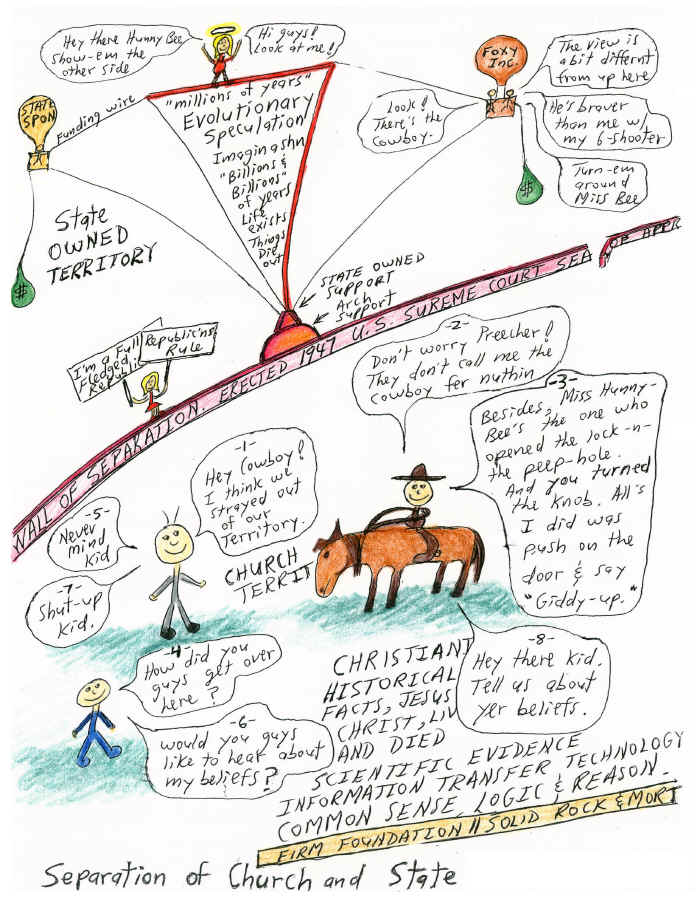 Hey there Hunny Bee
show-em the
other side
Hi guys!
Look at me!
STATE
SPON
Funding wire
"millions of years"
Evolutionary
Speculation
Imaginashn
"Billions &
Billions"
of years
Life
exists
Things
Died
out
FOXY
INC.
The view is
a bit differnt
from up here
Look!
There's the
Cowboy.
He's braver
than me w/
my 6-shooter
Turn-em
around
Miss Bee
$
$
State
OWNED
TERRITORY
STATE OWNED
SUPPORT
Arch
support
WALL OF SEPARATION. ERECTED 1947 U.S. SUREME COURT SEA
OF APPR
I'm a Full
Fledged
Republic
Republic'ns
Rule
-1-
Hey Cowboy!
I think we
strayed out
of our
Territory.
-2-
Don't worry Preecher!
They don't call me the
cowboy fer nuthin
-3-
Besides, Miss Hunny-
Bee's the one who
opened the lock-n-
the peep-hole.
And you turned
the knob. All's
I did was
push on the
door & say
"Giddy-up."
-5-
Never
mind
kid
-7-
Shut-up
kid.
CHURCH
TERRIT
-4-
How did you
guys get over
here?
-6-
would you guys
like to hear about
my beliefs?
-8-
Hey there kid.
Tell us about
yer beliefs.
CHRISTIANI
HISTORICAL
FACTS, JESUS
CHRIST, LIV
AND DIED
SCIENTIFIC EVIDENCE
INFORMATION TRANSFER TECHNOLOGY
COMMON SENSE, LOGIC & REASON.
FIRM FOUNDATION // SOLID ROCK & MORT
Separation of Church and State